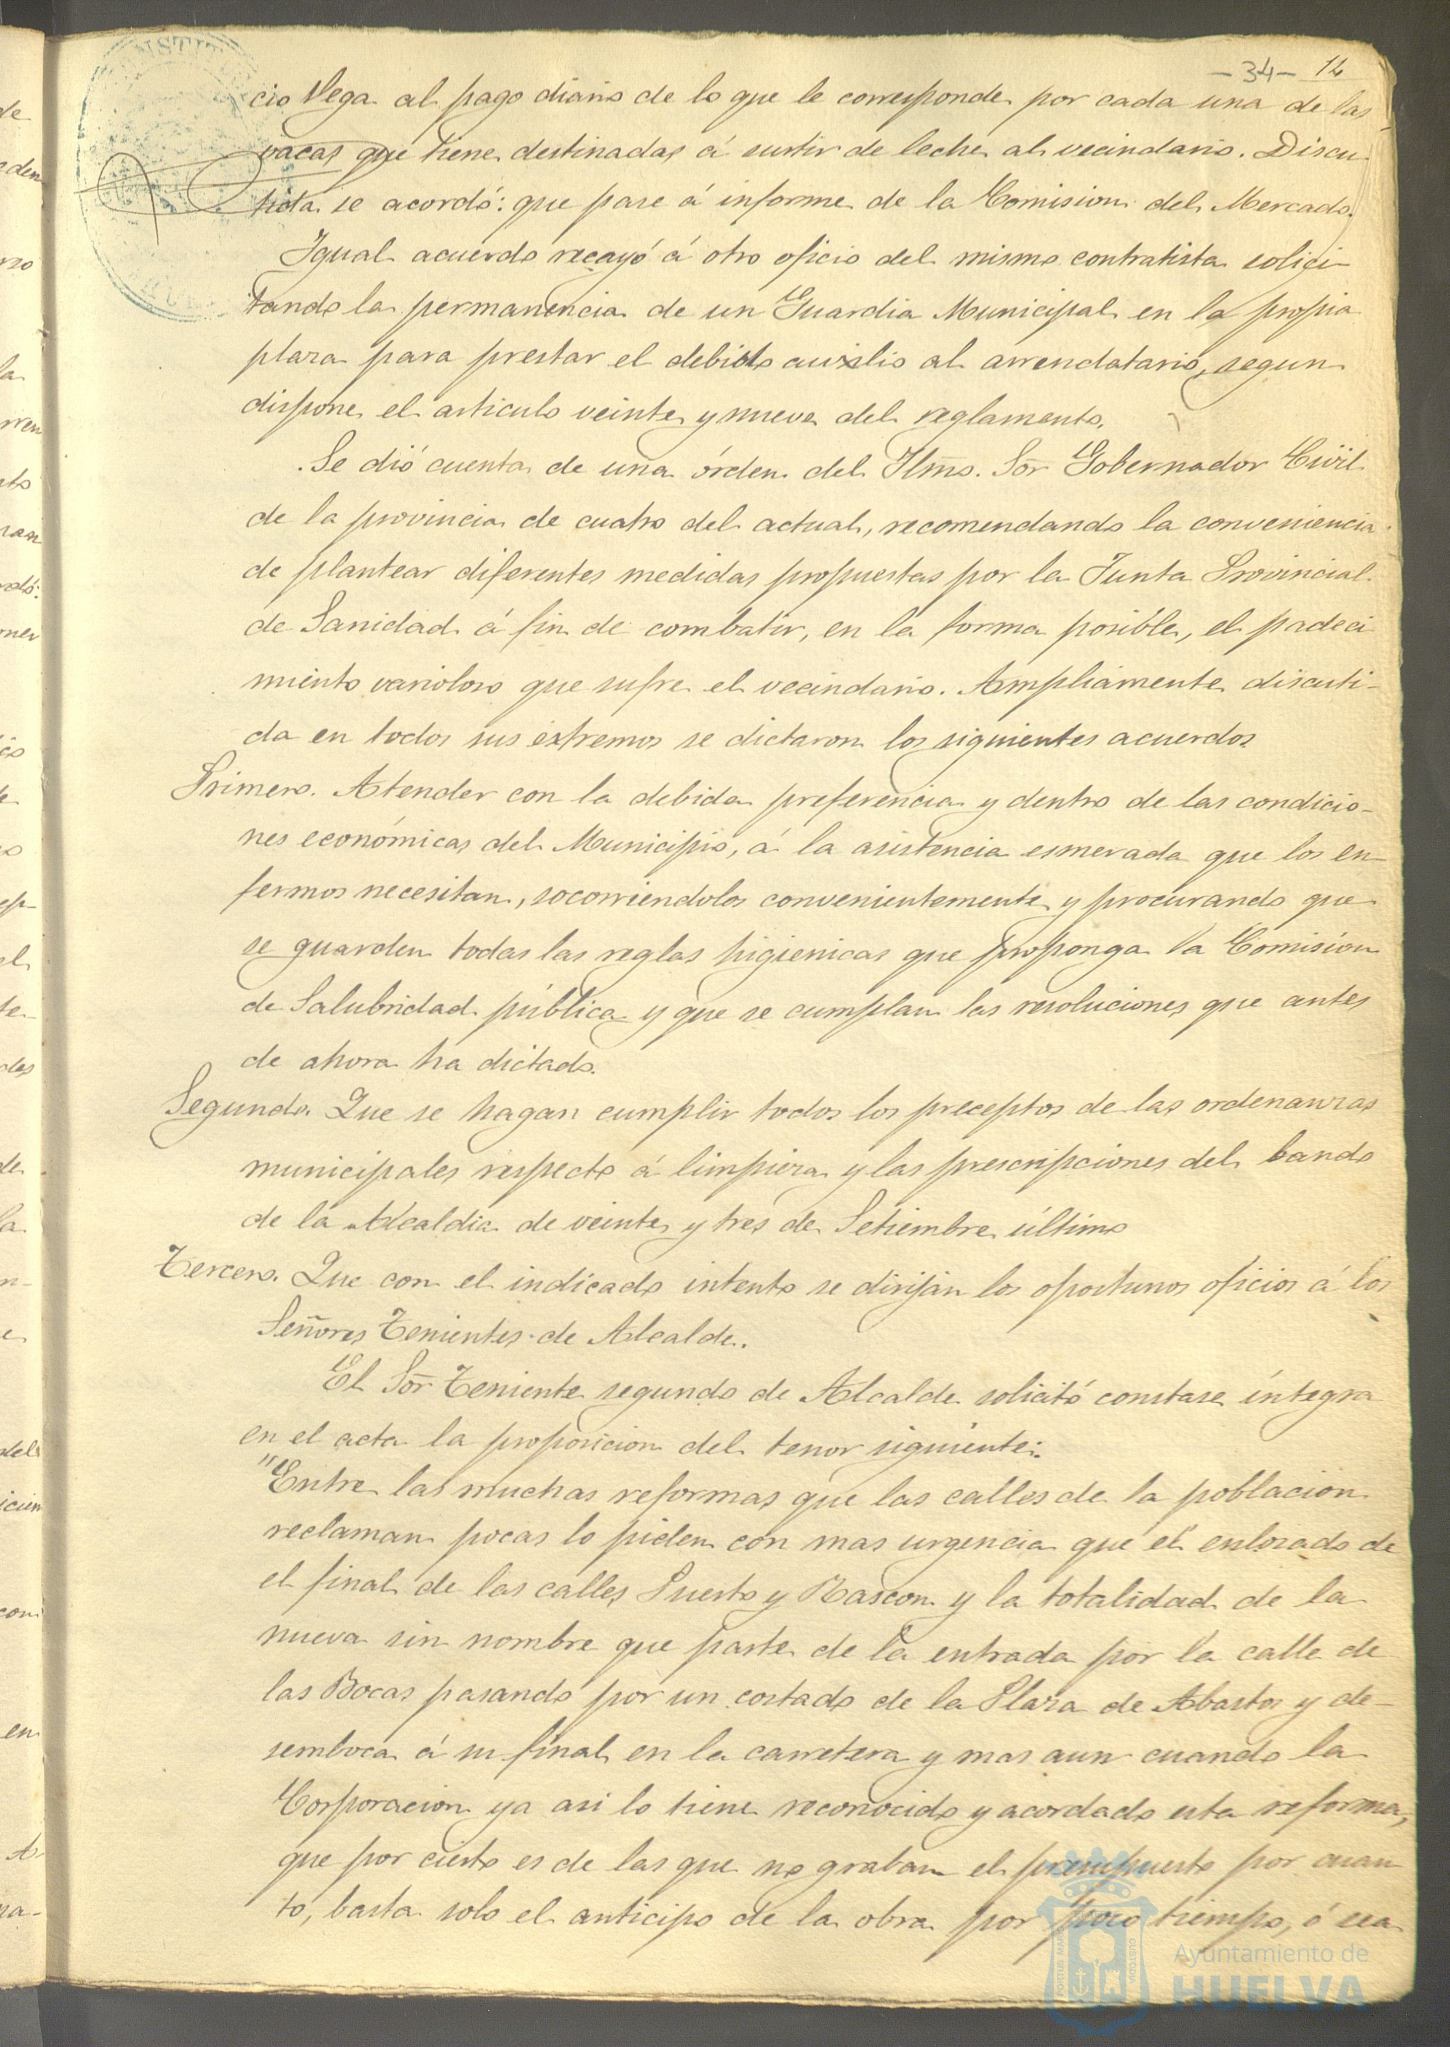 -34- 14
cio Vega al pago diario de lo que le corresponde por cada una de las
vacas que tiene destinadas á surtir de leche al vecindario. Discu-
tida se acordó: que pase á informe de la Comision del Mercado.
Igual acuerdo recayó á otro oficio del mismo contratista solici-
tando la permanencia de un Guardia Municipal en la propia
plaza para prestar el debido auxilio al arrendatario, segun
dispone el articulo veinte y nueve del reglamento.
Se dió cuenta de una órden del Iltmo. Sor Gobernador Civil
de la provincia de cuatro del actual, recomendando la conveniencia
de plantear diferentes medidas propuestas por la Junta Provincial
de Sanidad á fin de combatir, en la forma posible, el padeci
miento varioloso que sufre el vecindario. Ampliamente discuti-
da en todos sus extremos se dictaron los siguientes acuerdos
Primero. Atender con la debida preferencia y dentro de las condicio-
nes económicas del Municipio, á la asistencia esmerada que los en-
fermos necesitan, socorriendolos convenientemente y procurando que
se guarden todas las reglas higienicas que proponga la Comision
de Salubridad pública y que se cumplan las resoluciones que antes
de ahora ha dictado.
Segundo. Que se hagan cumplir todos los preceptos de las ordenanzas
municipales respecto á limpieza y las prescripciones del bando
de la Alcaldia de veinte y tres de Setiembre último
Tercero. Que con el indicado intento se dirijan los oportunos oficios á los
Señores Tenientes de Alcalde.
El Sor Teniente segundo de Alcalde solicitó constase íntegra
en el acta la proposicion del tenor siguiente:
"Entre las muchas reformas que las calles de la poblacion
reclaman pocas lo piden con mas urgencia que el enlosado de
el final de las calles Puerto y Rascon y la totalidad de la
nueva sin nombre que parte de la entrada por la calle de
las Bocas pasando por un costado de la Plaza de Abastos y de-
semboca á su final en la carretera y mas aun cuando la
Corporacion ya asi lo tiene reconocido y acordado esta reforma,
que por cierto es de las que no graban el presupuesto por cuan
to, basta solo el anticipo de la obra por poco tiempo, ó sea
Ayuntamiento de
HUELVA